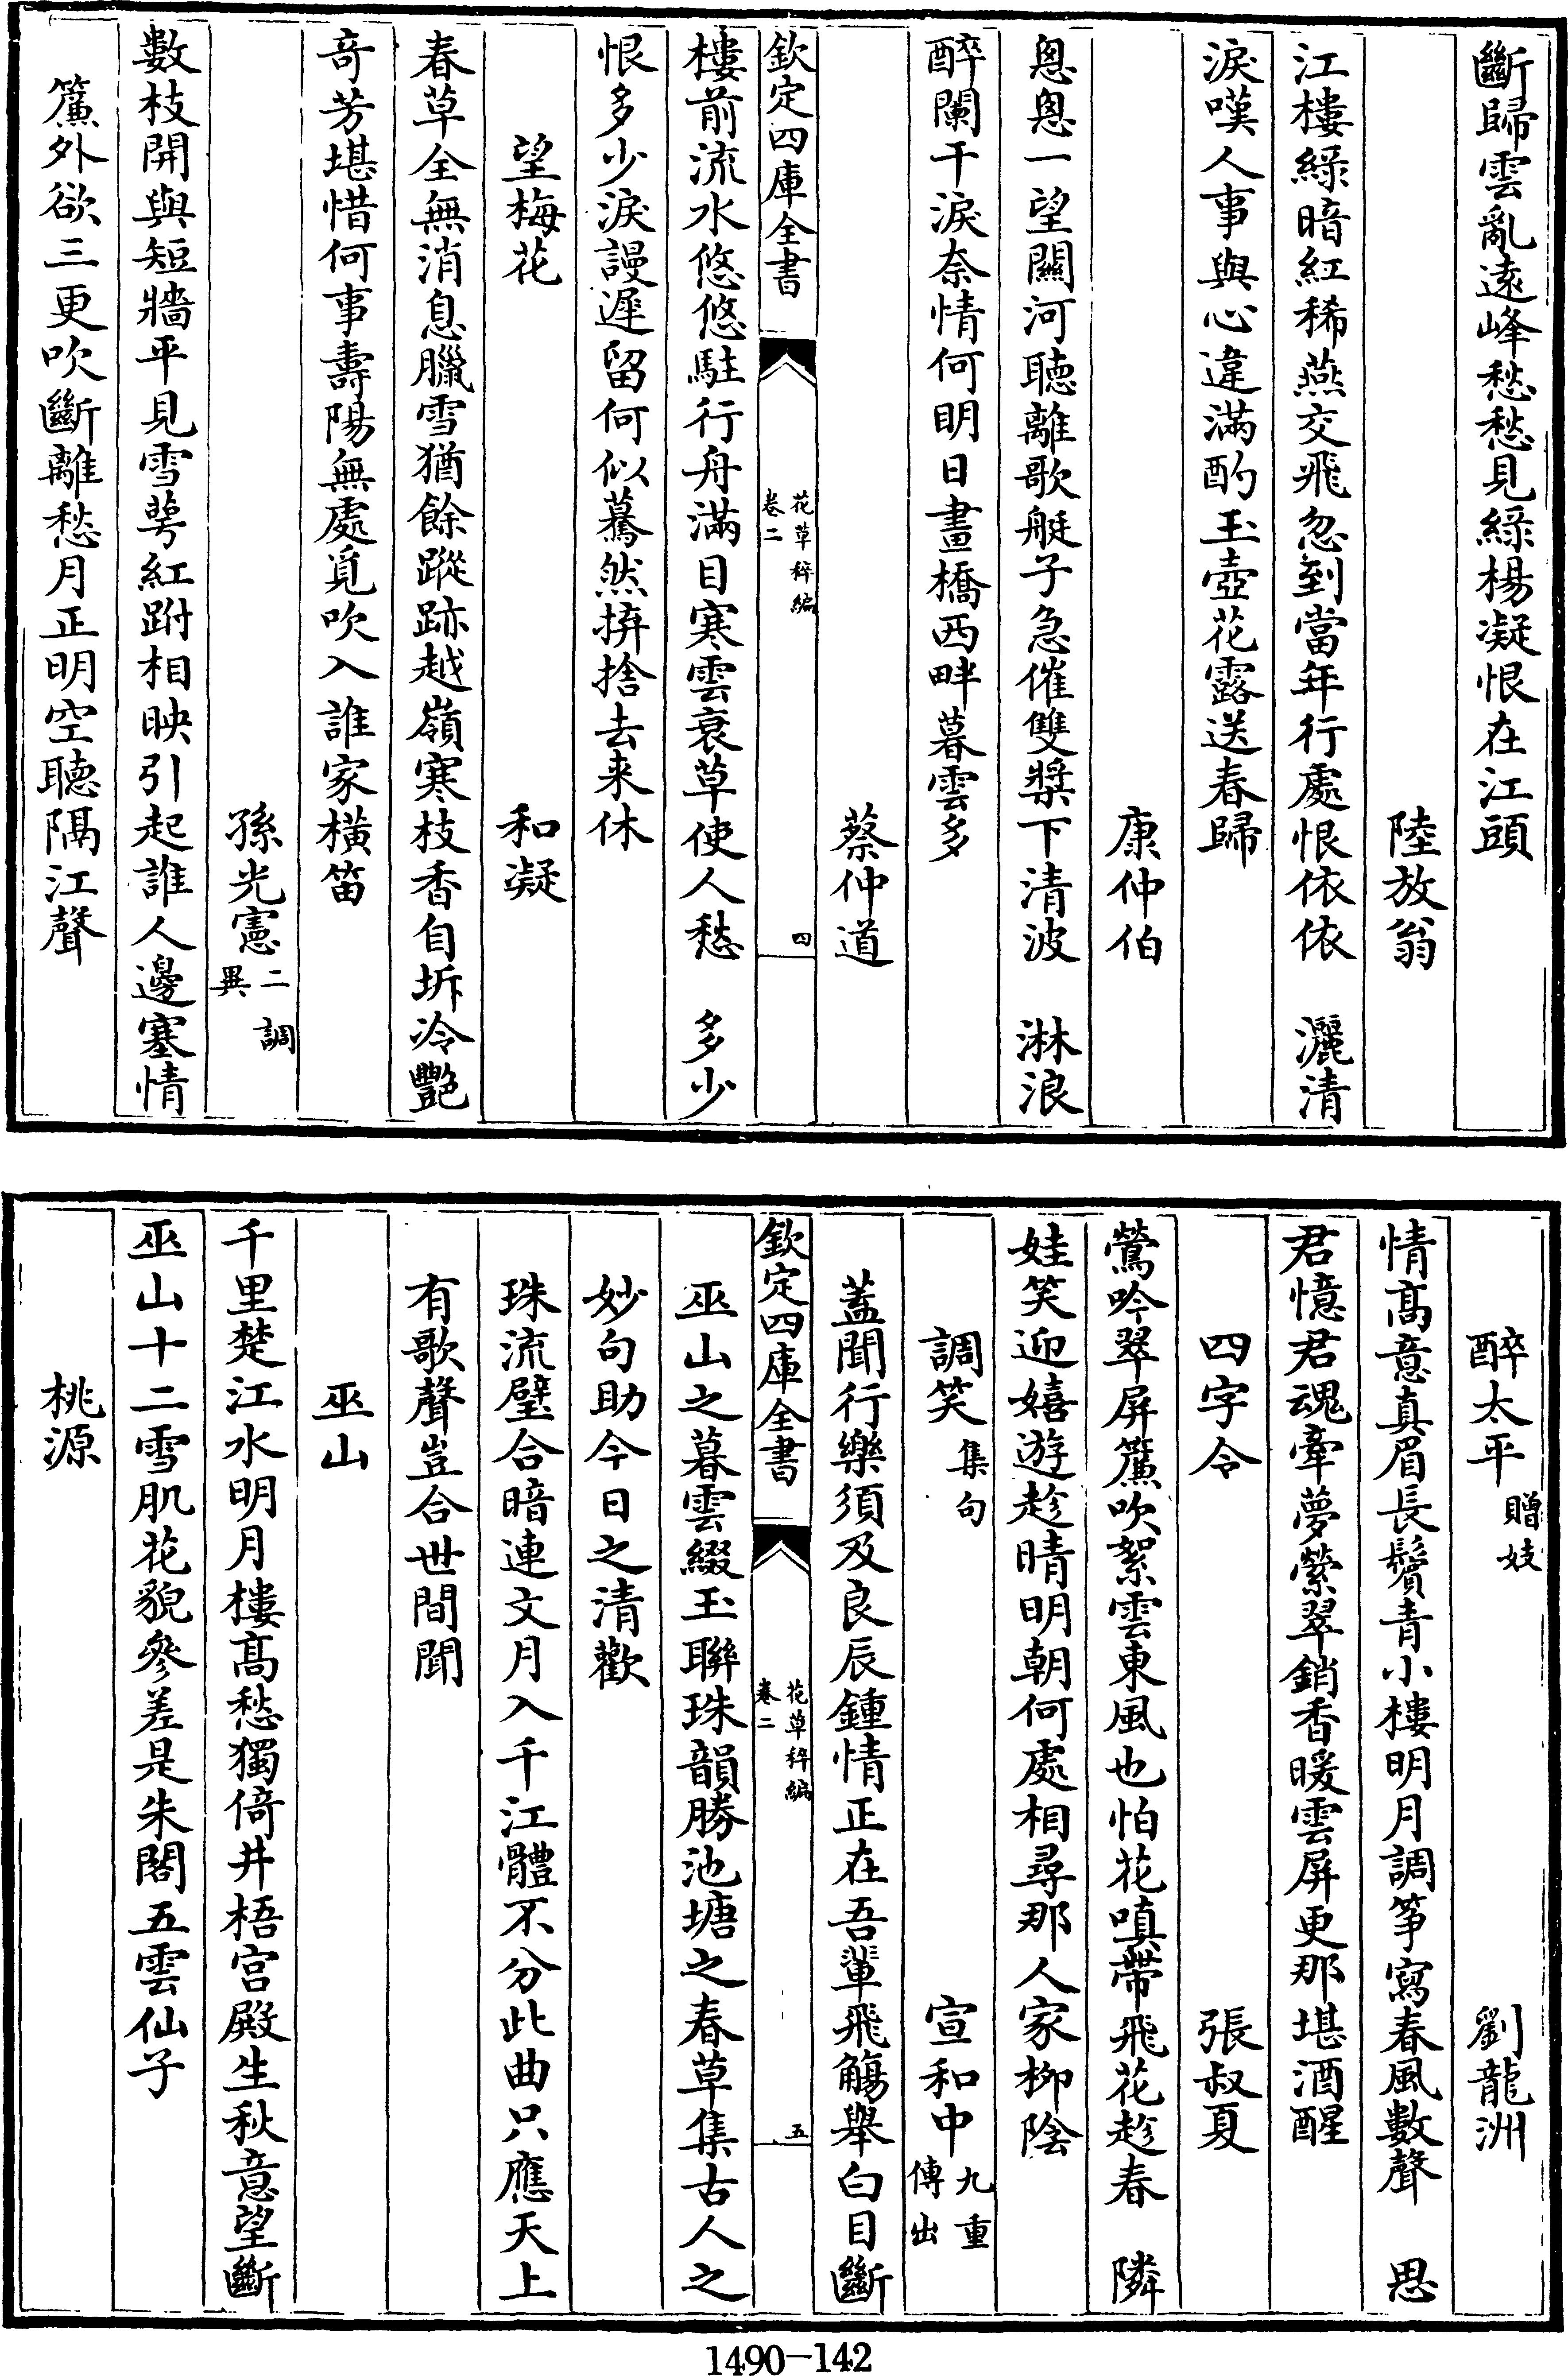 斷歸雲亂遠峰愁愁見綠楊凝恨在江頭
陸放翁
江樓綠暗紅稀燕交飛忽到當年行處恨依依　灑清
淚嘆人事與心違滿酌玉壺花露送春歸
康仲伯
悤悤一望關河聽離歌艇子急催雙槳下清波　淋浪
醉闌干淚奈情何明日畫橋西畔暮雲多
蔡仲道
欽定四庫全書
花草稡編
卷二
四
樓前流水悠悠駐行舟滿目寒雲衰草使人愁　多少
恨多少淚謾遲留何似驀然拚捨去来休
望梅花　和凝
春草全無消息臘雪猶餘蹤跡越嶺寒枝香自坼冷艷
奇芳堪惜何事壽陽無處覓吹入誰家橫笛
孫光憲 二調
異
數枝開與短牆平見雪萼紅跗相映引起誰人邊塞情
簾外欲三更吹斷離愁月正明空聽隔江聲
醉太平 贈妓　劉龍洲
情髙意真眉長鬢青小樓明月調箏寫春風數聲　思
君憶君魂牽夢縈翠銷香暖雲屏更那堪酒醒
四字令　張叔夏
鶯吟翠屏簾吹絮雲東風也怕花嗔帶飛花趁春　隣
娃笑迎嬉遊趁晴明朝何處相尋那人家柳陰
調笑 集句　宣和中 九重
傳出
蓋聞行樂須及良辰鍾情正在吾輩飛觴舉白目斷
欽定四庫全書
花草稡編
卷二
五
巫山之暮雲綴玉聯珠韻勝池塘之春草集古人之
妙句助今日之清歡
珠流璧合暗連文月入千江體不分此曲只應天上
有歌聲豈合世間聞
巫山
千里楚江水明月樓髙愁獨倚井梧宫殿生秋意望斷
巫山十二雪肌花貌參差是朱閣五雲仙子
桃源
1490-142